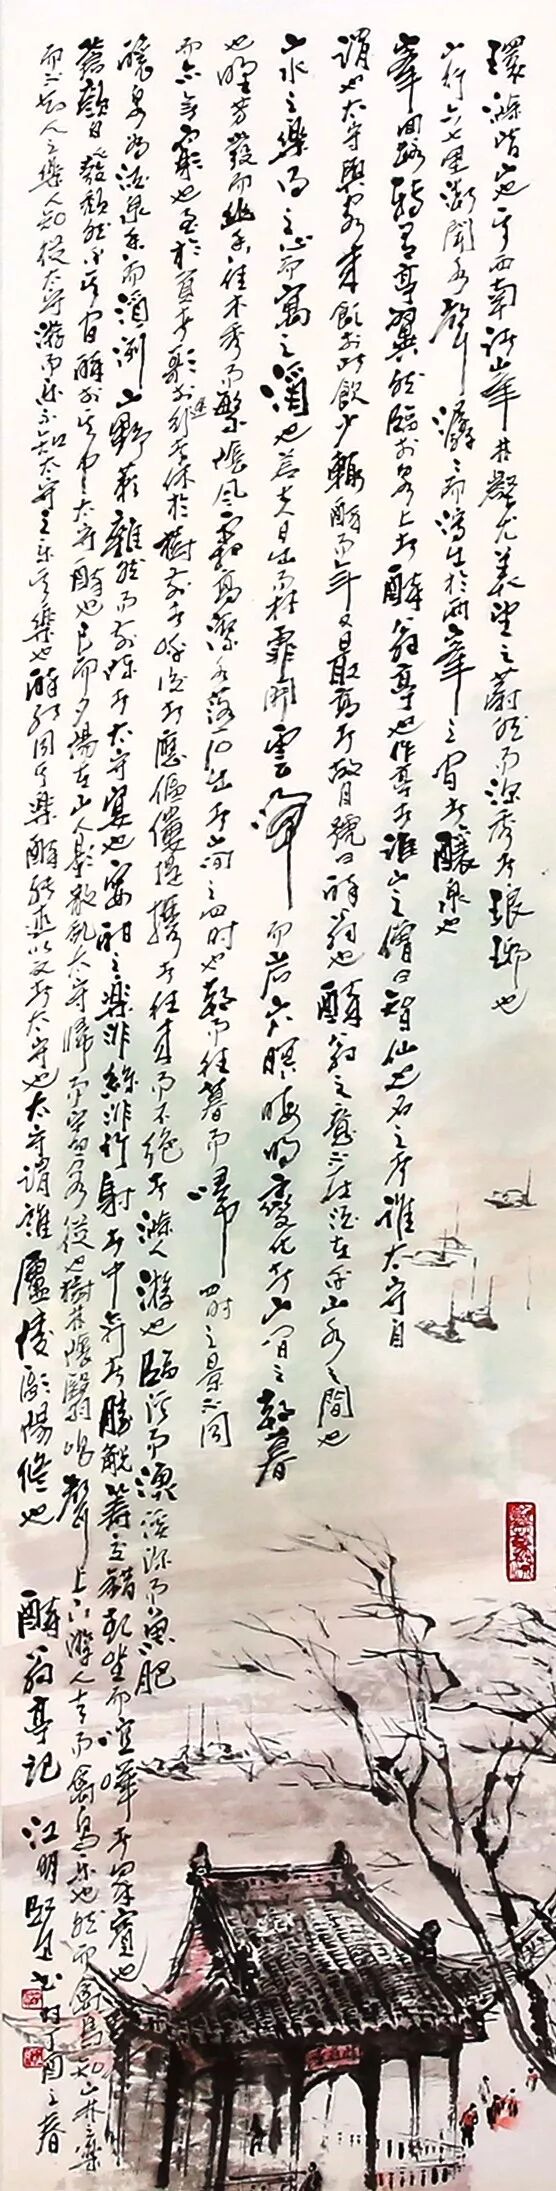 環滁皆山也其西南諸峯林壑尤美望之蔚然而深秀者琅琊也
山行六七里漸聞水聲潺潺而瀉出於兩峯之間者釀泉也
峯回路轉有亭翼然臨於泉上者醉翁亭也作亭者誰山之僧曰智仙也名之者誰太守自
謂也太守與客來飲於此飲少輒醉而年又最高者故自號曰醉翁也醉翁之意不在酒在乎山水之間也
山水之樂得之心而寓之酒也若夫日出而林霏開雲歸而岩穴暝晦明變化者山間之朝暮
也野芳發而幽香佳木秀而繁陰風霜高潔水落石出者山間之四時也朝而往暮而歸四時之景不同
而亦無窮也至於負者歌於途行者休於樹前者呼後者應傴僂提攜者往來而不絕者滁人遊也臨溪而漁溪深而魚肥
釀泉為酒泉香而酒洌山野蔌雜然而前陳者太守宴也宴酣之樂非絲非竹射者中弈者勝觥籌交錯起坐而喧嘩者眾賓也
蒼顏白髮頹然乎其間醉於其中太守醉也已而夕陽在山人影散亂太守歸而賓客從也樹林陰翳鳴聲上下遊人去而禽鳥樂也然而禽鳥知山林之樂
而不知人之樂人知從太守游而樂不知太守之樂其樂也醉能同其樂醒能述以文者太守也太守謂誰廬陵歐陽修也 醉翁亭記 江明賢書時丁酉之春